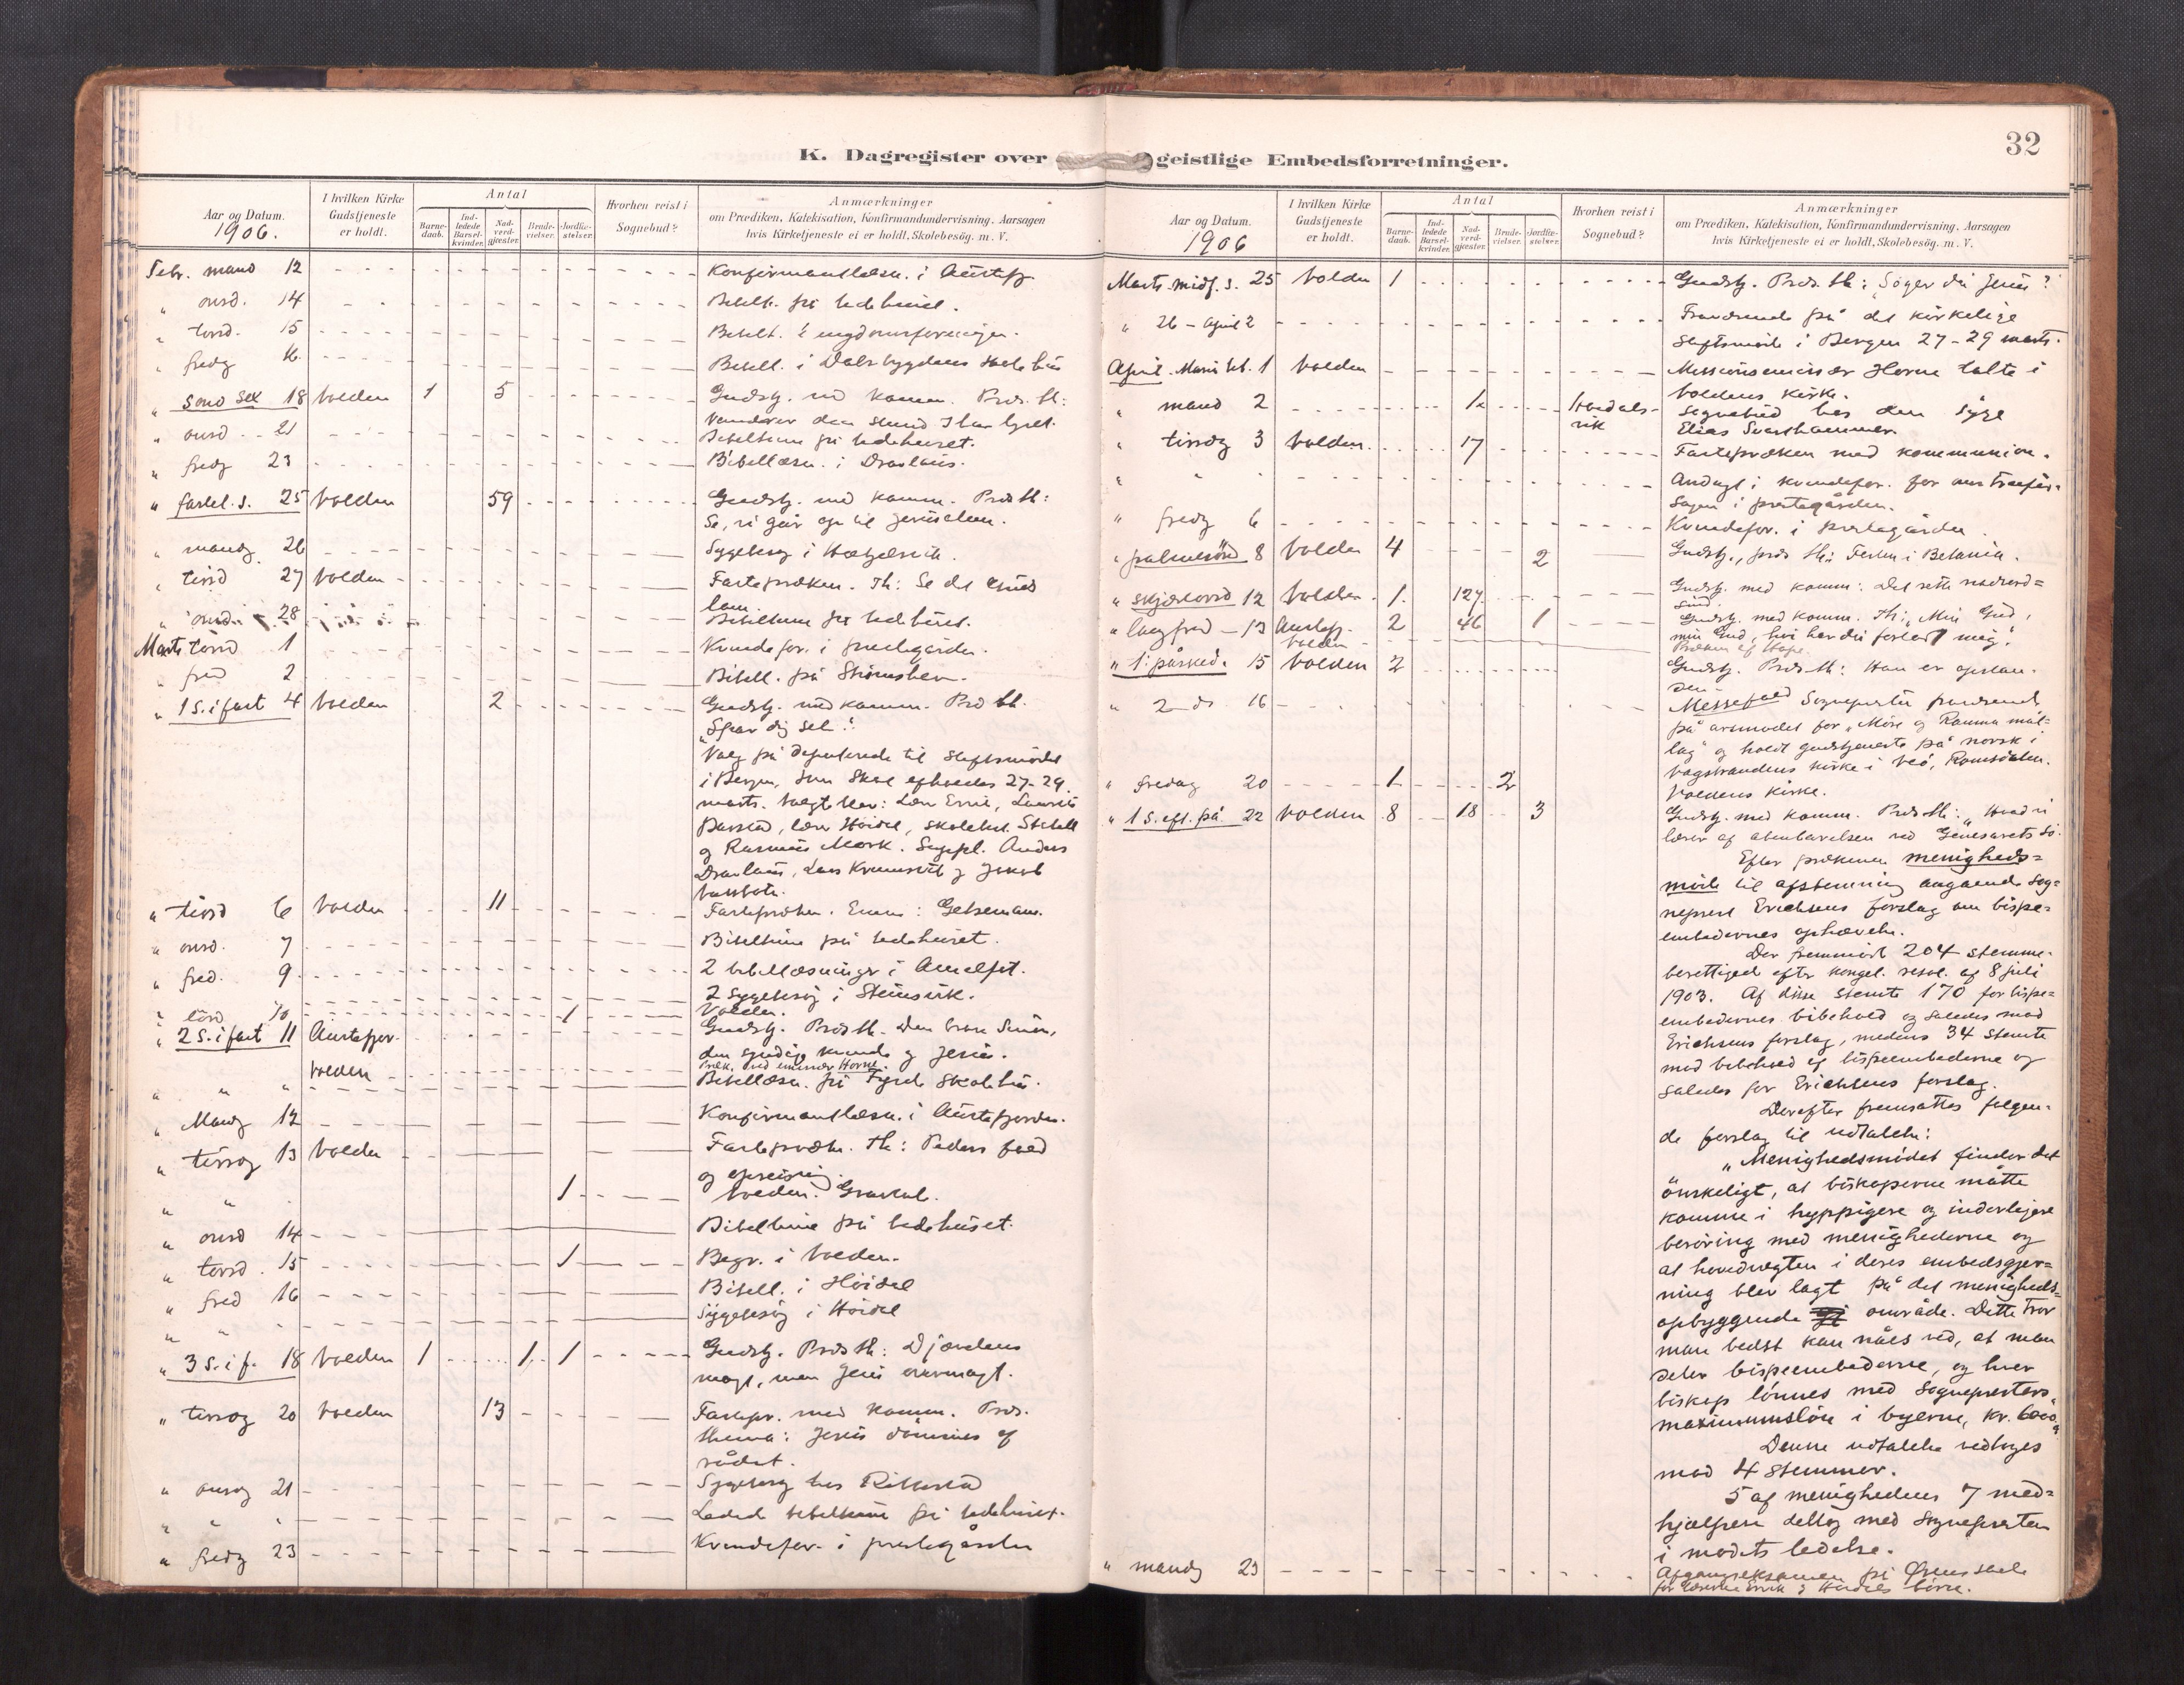 32
K. Dagregister over geistlige Embedsforretninger.
Aar og Datum. 1906. I hvilken Kirke Gudstjeneste er holdt. Antal Barne-daab. Ind-ledede Barsel-kvinder. Nad-verd-gjæster. Brude-vielser. Jordfæ-stelser. Hvorhen reist i Sognebud? Anmærkninger
om Prædiken, Katekisation, Konfirmandundervisning, Aarsagen
hvis Kirketjeneste ei er holdt, Skolebesøg. m. V.
Febr. mand 12 Konfirmantlæsn. i Austefj.
" onsd. 14 Bibelt. på bedehuset.
" torsd. 15 Bibelt. i ungdomsforeningen.
" fredg 16 Bibell. i Dalsbygdens skolehus
" sønd sex 18 Volden 1 5 Gudstj. med komm. Præd. th:
Vandrer den stund I har lyset.
" onsd. 21 Bibeltime på bedehuset.
" fredg 23 Bibellæsn. i Dravlaus.
" fastel. s. 25 Volden 59 Gudstj. med komm. Præd th:
Se, vi går op til Jerusalem.
" mandg 26 Sygebesøg i
" tirsd 27 Volden Fastepræken. Th: Se det Guds
lam.
" onsd. 28 Bibeltime på bedehuset.
Marts torsd 1 Kvindefor. i prestegården.
" fred 2 Bibell. på Strømshavn.
" 1 S. i fast 4 Volden 2 Gudstj. med komm. Præd th.
"Spar dig selv!"
Valg på deputerede til stiftsmødet
i Bergen, som skal afholdes 27-29.
marts. Valgt blev: Lær Ervik, Laurits
Barstad, lærer Høidal, skolebest.
og Rasmus Mork. Suppl. Anders
Dravlaus, Lars Krumsvik og Jakob
" tirsd 6 Volden 11 Fastepræken. Emne: Getsemane.
" onsd. 7 Bibeltime på bedehuset.
" fred. 9 2 bibellæsninger i Aurelfet.
2 sygebesøg i Steinsvik.
" lørd 10 1 Volden.
" 2 S. i fast 11 Austefjor. Gudstj. Præd th. Den Simon,
den syndige kvinde og Jesus.
Volden Præk. ved emissær Horne.
" " " Bibellæsn. på Fyrde skolehus.
" Mandg 12 Konfirmantlæsn. i Austefjorden.
" tirsdg 13 Volden Fasteprækn. Th: Peders fald
og opreisning.
" " 1 Volden. Gravtal.
" onsd 14 Bibeltime på bedehuset.
" torsd. 15 1 Begr. i Volden.
" fred 16 Bibell. i Høidal
" " Sygebesøg i Høidal
" 3 S. i f. 18 Volden 1 1 1 Gudstj. Præd th: Djævelens
magt, men Jesu overmagt.
" tirsdg 20 Volden 13 Fastepr. med komm. Præd.
thema: Jesus dømmes af
rådet.
" onsdg 21 Sygebesøg hos
" " " Ledede bibeltime på bedehuset.
" fredg 23 Kvindefor. i prestegården
Aar og Datum. 1906 I hvilken Kirke Gudstjeneste er holdt. Antal Barne-daab. Ind-ledede Barsel-kvinder. Nad-verd-gjæster. Brude-vielser. Jordfæ-stelser. Hvorhen reist i Sognebud? Anmærkninger
om Prædiken, Katekisation, Konfirmandundervisning, Aarsagen
hvis Kirketjeneste ei er holdt, Skolebesøg. m. V.
Marts. midf. s. 25 Volden 1 Gudstj. Præd. th: "Søger du Jesus?"
" 26 - April 2 Fraværende på det kirkelige
stiftsmøde i Bergen 27-29 marts.
April. Mariæ beb. 1 Volden Missionsemissær Horne talte i
Voldens kirke.
" mand 2 Sognebud hos den syge
Elias Svarthammer.
" tirsdg 3 Volden 17 Fastepræken med kommunion.
" " Andagt i kvindefor. for
sagen i prestegården.
" fredg 6 Kvindefor. i prestegården.
" palmesønd 8 Volden 4 2 Gudstj., præd th: Festen i Betania.
" skjærtorsd 12 Volden 1. 127 Gudstj. med komm: Det rette nadverd=
sind.
" langfred - 13 Austefj. 2 46 1 Gudstj. med komm. Th: "Min Gud,
Volden min Gud, hvi har du forladt mig."
Prækn af Hope.
" 1. påsked. 15 Volden 2 Gudstj. Præd. th: Han er opstan-
den.
" 2 d. 16 Messefald Sognepresten fraværende
på årsmødet for "Møre og Romsa mål=
lag" og holdt gudstjeneste på norsk i
Vågstrandens kirke i Veø, Romsdalen.
" fredag 20 1 2 Voldens kirke.
" 1 S. eft. på. 22 Volden 8 18 3 Gudstj. med komm. Præd. th: "Hvad vi
lærer af åbenbarelsen ved Genesarets sø.
Efter prækenen menigheds=
møde til afstemning angaaende sog=
neprest Erichsens forslag om bispe=
embedernes ophævelse.
Der fremmødt 204 stemme-
berettigede efter kongel. resol. af 8 juli
1903. Af disse stemte 170 for bispe=
embedernes bibehold og saledes mod
Erichsens forslag, medens 34 stemte
mod bibehold af bispeembederne og
saledes for Erichsens forslag.
Derefter fremsattes følgen-
de forslag til udtalelse:
"Menighedsmødet finder det
ønskeligt, at biskoperne måtte
komme i hyppigere og inderligere
berøring med menighederne og
at hovedvægten i deres embedsgjer=
ning blev lagt på det menigheds=
opbyggende område. Dette tror
man bedst kan nåes ved, at man
deler bispeembederne, og hver
biskop lønnes med sogneprestens
maximumsløn i byerne, kr. 6000."
Denne udtalelse vedtoges
mod 4 stemmer.
5 af menighedens 7 med=
hjælpere deltog med sognepresten
i mødets ledelse.
" mandg 23 Afgangseksamen på Ørens skole
for lærerne Ervik og Høidals børn.